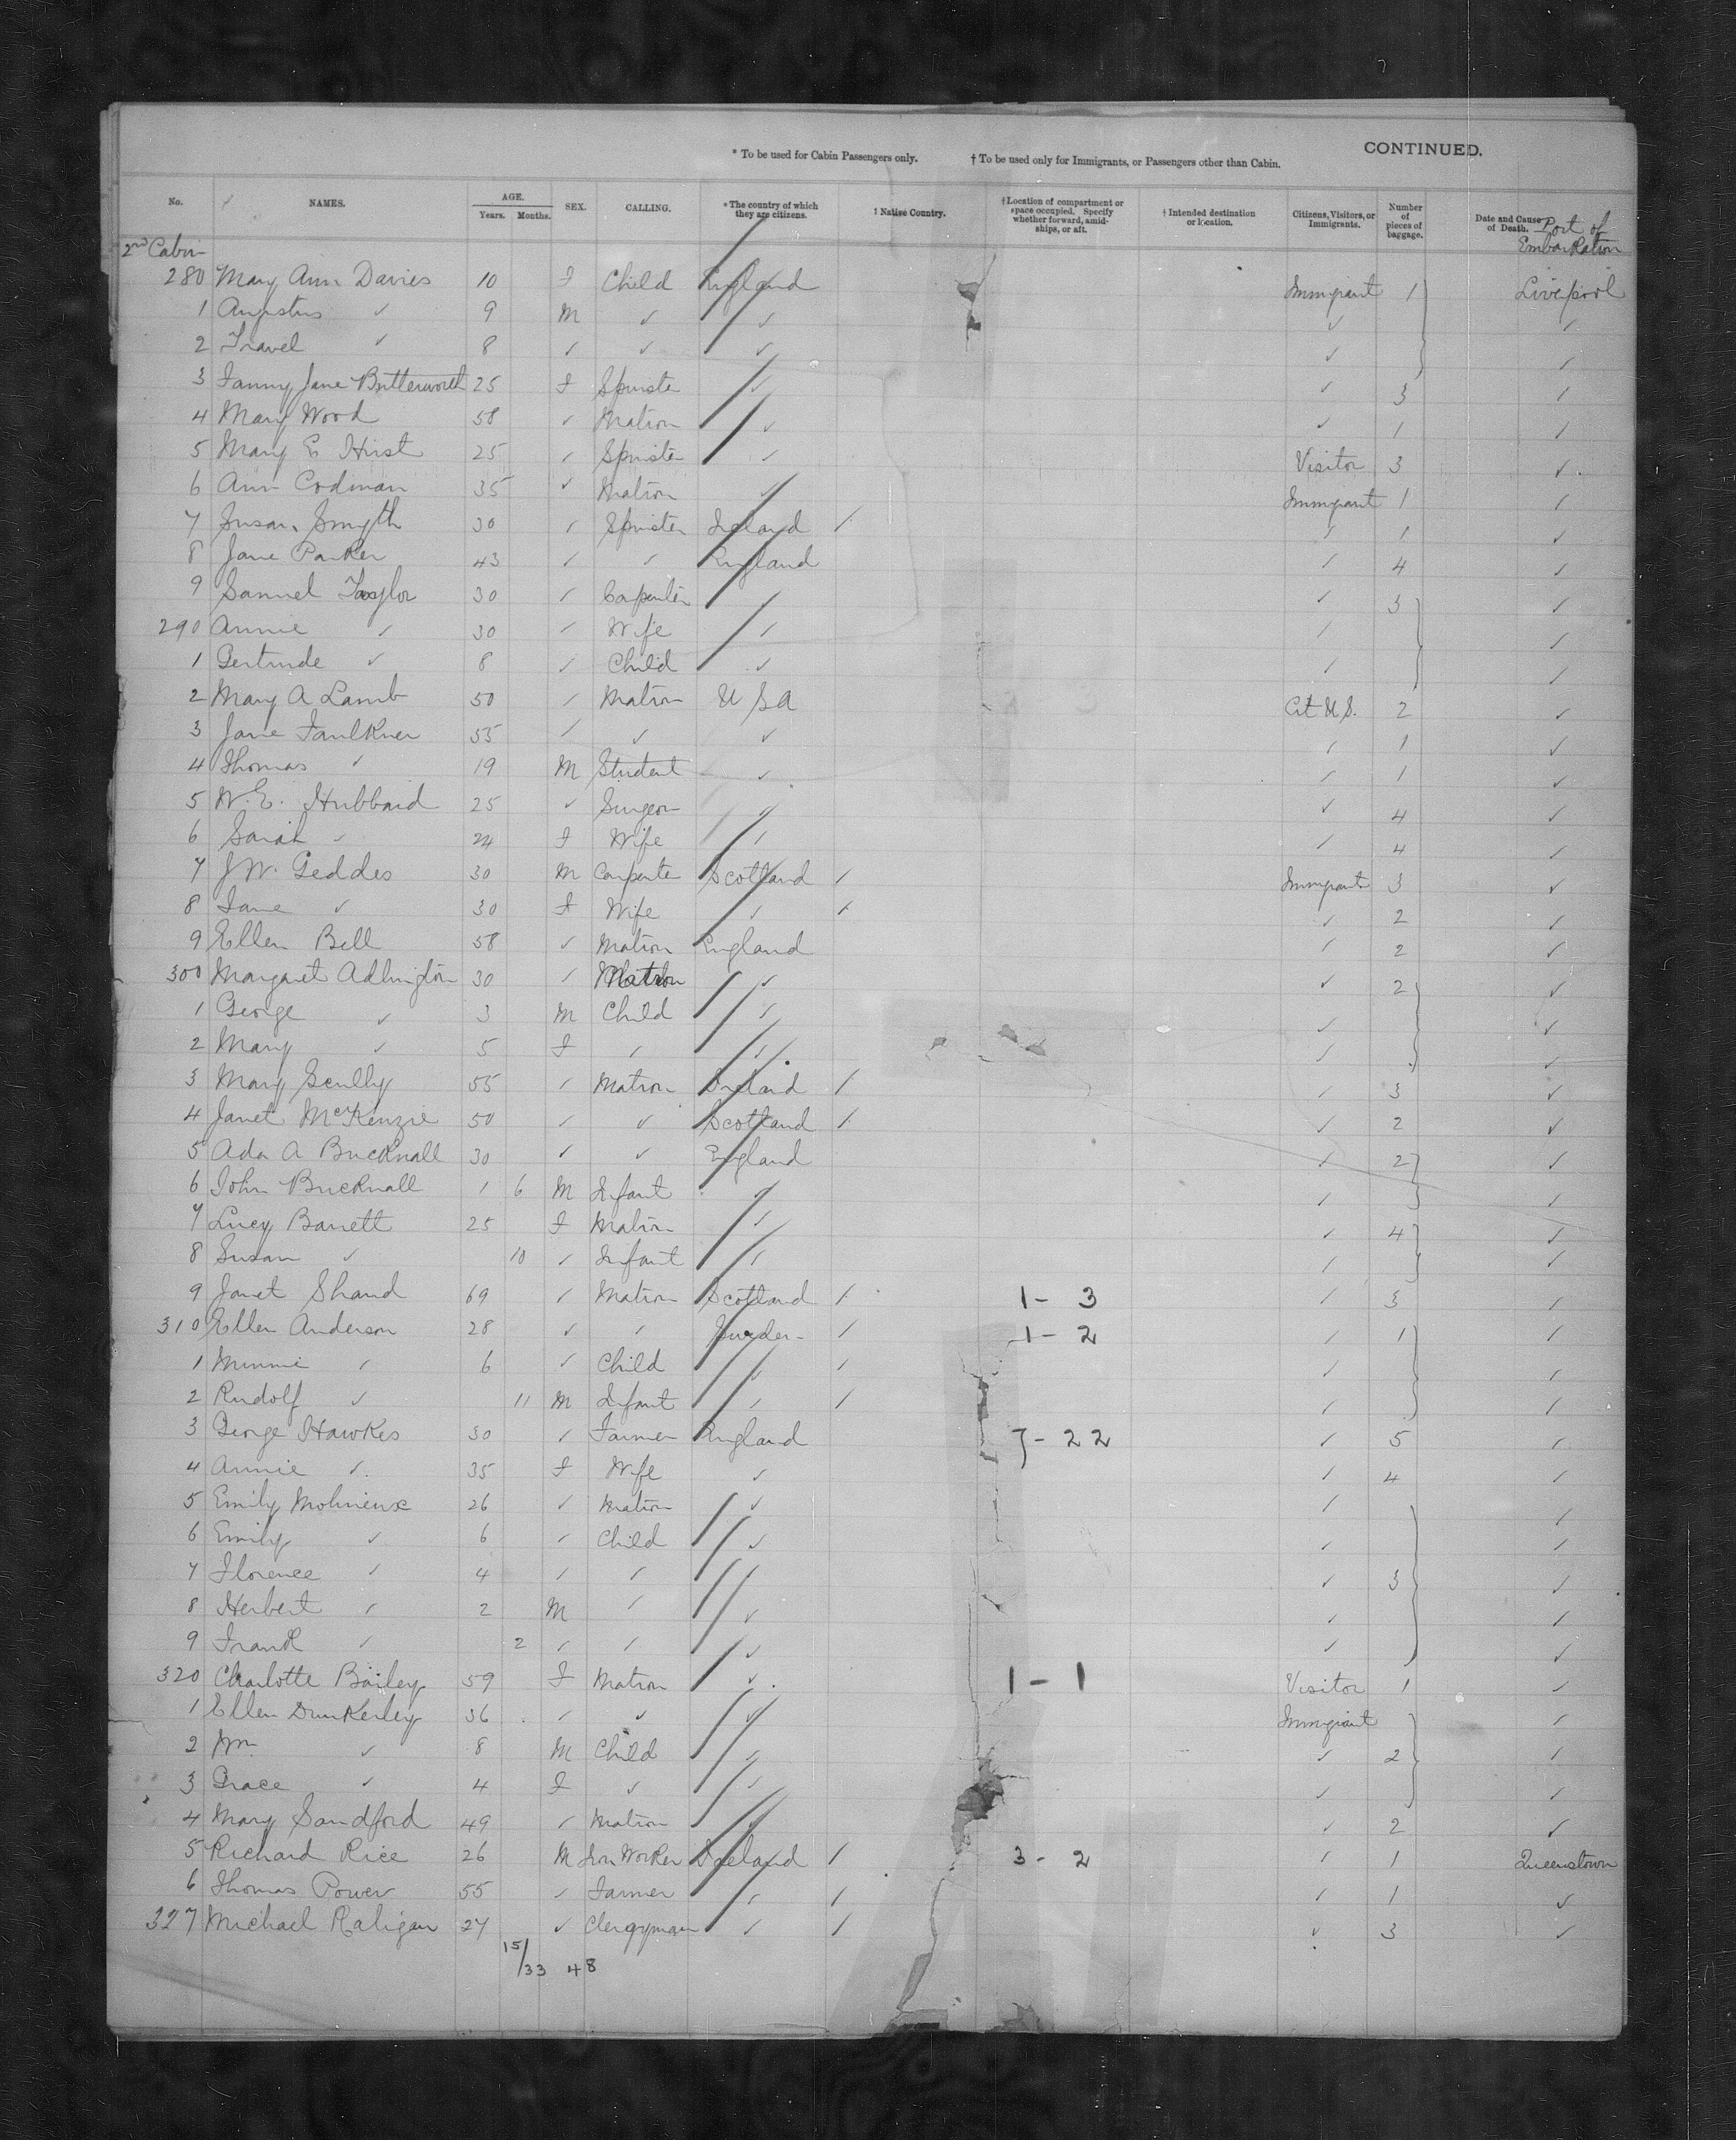 CONTINUED.
* To be used for Cabin Passengers only. † To be used only for Immigrants, or Passengers other than Cabin.
No. NAMES. AGE. Years. Months. SEX. CALLING. * The country of which they are citizens. † Native Country. † Location of compartment or space occupied. Specify whether forward, amidships, or aft. † Intended destination or location. Citizens, Visitors, or Immigrants. Number of pieces of baggage. Date and Cause of Death. Port of Embarkation
2nd Cabin
280 Mary Ann Davies 10 F Child England Immigrant 1 Liverpool
1 Augustus ✓ 9 M ✓ ✓ ✓ ✓
2 Travel ✓ 8 ✓ ✓ ✓ ✓ ✓
3 Fanny Jane Butterworth 25 F Spinster ✓ ✓ 3 ✓
4 Mary Wood 58 ✓ Matron ✓ ✓ 1 ✓
5 Mary E Hirst 25 ✓ Spinster ✓ Visitor 3 ✓
6 Ann Codman 35 ✓ Matron ✓ Immigrant 1 ✓
7 Susan Smyth 30 ✓ Spinster Ireland / ✓ 1 ✓
8 Jane Parker 43 ✓ ✓ England ✓ 4 ✓
9 Samuel Taylor 30 ✓ Carpenter ✓ ✓ 3 ✓
290 Annie ✓ 30 ✓ Wife ✓ ✓ ✓
1 Gertrude ✓ 8 ✓ Child ✓ ✓ ✓
2 Mary A Lamb 50 ✓ Matron U S A Cit U.S. 2 ✓
3 Jane Faulkner 55 ✓ ✓ ✓ ✓ 1 ✓
4 Thomas ✓ 19 M Student ✓ ✓ 1 ✓
5 W.E. Hubbard 25 ✓ Surgeon ✓ ✓ 4 ✓
6 Sarah ✓ 24 F Wife ✓ ✓ 4 ✓
7 J W. Geddes 30 M Carpenter Scotland / Immigrant 3 ✓
8 Jane ✓ 30 F Wife ✓ / ✓ 2 ✓
9 Ellen Bell 58 ✓ Matron England ✓ 2 ✓
300 Margaret Adlington 30 ✓ Matron ✓ ✓ 2 ✓
1 George ✓ 3 M Child ✓ ✓ ✓
2 Mary ✓ 5 F ✓ ✓ ✓ ✓
3 Mary Scully 55 ✓ Matron Ireland / ✓ 3 ✓
4 Janet McKenzie 50 ✓ ✓ Scotland / ✓ 2 ✓
5 Ada A Bucknall 30 ✓ ✓ England ✓ 2 ✓
6 John Bucknall 1 6 M Infant ✓ ✓ ✓
7 Lucy Barrett 25 F Matron ✓ ✓ 4 ✓
8 Susan ✓ 10 ✓ Infant ✓ ✓ ✓
9 Janet Shand 69 ✓ Matron Scotland / 1 - 3 ✓ 3 ✓
310 Ellen Anderson 28 ✓ ✓ Sweden / 1 - 2 ✓ 1 ✓
1 Minnie ✓ 6 ✓ Child ✓ / ✓ ✓
2 Rudolf ✓ 11 M Infant ✓ / ✓ ✓
3 George Hawkes 30 ✓ Farmer England 7 - 22 ✓ 5 ✓
4 Annie ✓ 35 F Wife ✓ ✓ 4 ✓
5 Emily Molineux 26 ✓ Matron ✓ ✓ ✓
6 Emily ✓ 6 ✓ Child ✓ ✓ ✓
7 Florence ✓ 4 ✓ ✓ ✓ 3 ✓
8 Herbert ✓ 2 M ✓ ✓ ✓ ✓
9 Frank ✓ 2 ✓ ✓ ✓ ✓ ✓
320 Charlotte Bailey 59 F Matron ✓ 1 - 1 Visitor 1 ✓
1 Ellen Dunkerley 36 ✓ ✓ ✓ Immigrant ✓
2 Wm ✓ 8 M Child ✓ ✓ 2 ✓
3 Grace ✓ 4 F ✓ ✓ ✓ ✓
4 Mary Sandford 49 ✓ Matron ✓ ✓ 2 ✓
5 Richard Rice 26 M Iron Worker Ireland / 3 - 2 ✓ 1 Queenstown
6 Thomas Power 55 ✓ Farmer ✓ / ✓ 1 ✓
327 Michael Raligan 27 ✓ Clergyman ✓ / ✓ 3 ✓
15/33 48